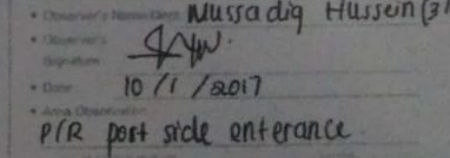 • Observer's Name/Dept: Mussadiq Hussein (31
• Observer's
Signature
• Date: 10/1/2017
• Area Observation
P/R port side enterance